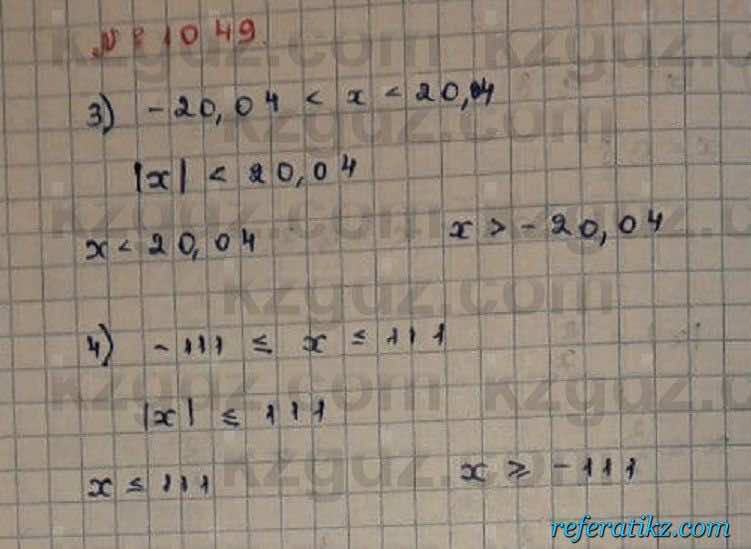 № 1049.
3) -20,04 < x < 20,04
|x| < 20,04
x < 20,04 x > -20,04
4) -111 ≤ x ≤ 111
|x| ≤ 111
x ≤ 111 x ≥ -111
kzgdz.com
referatikz.com